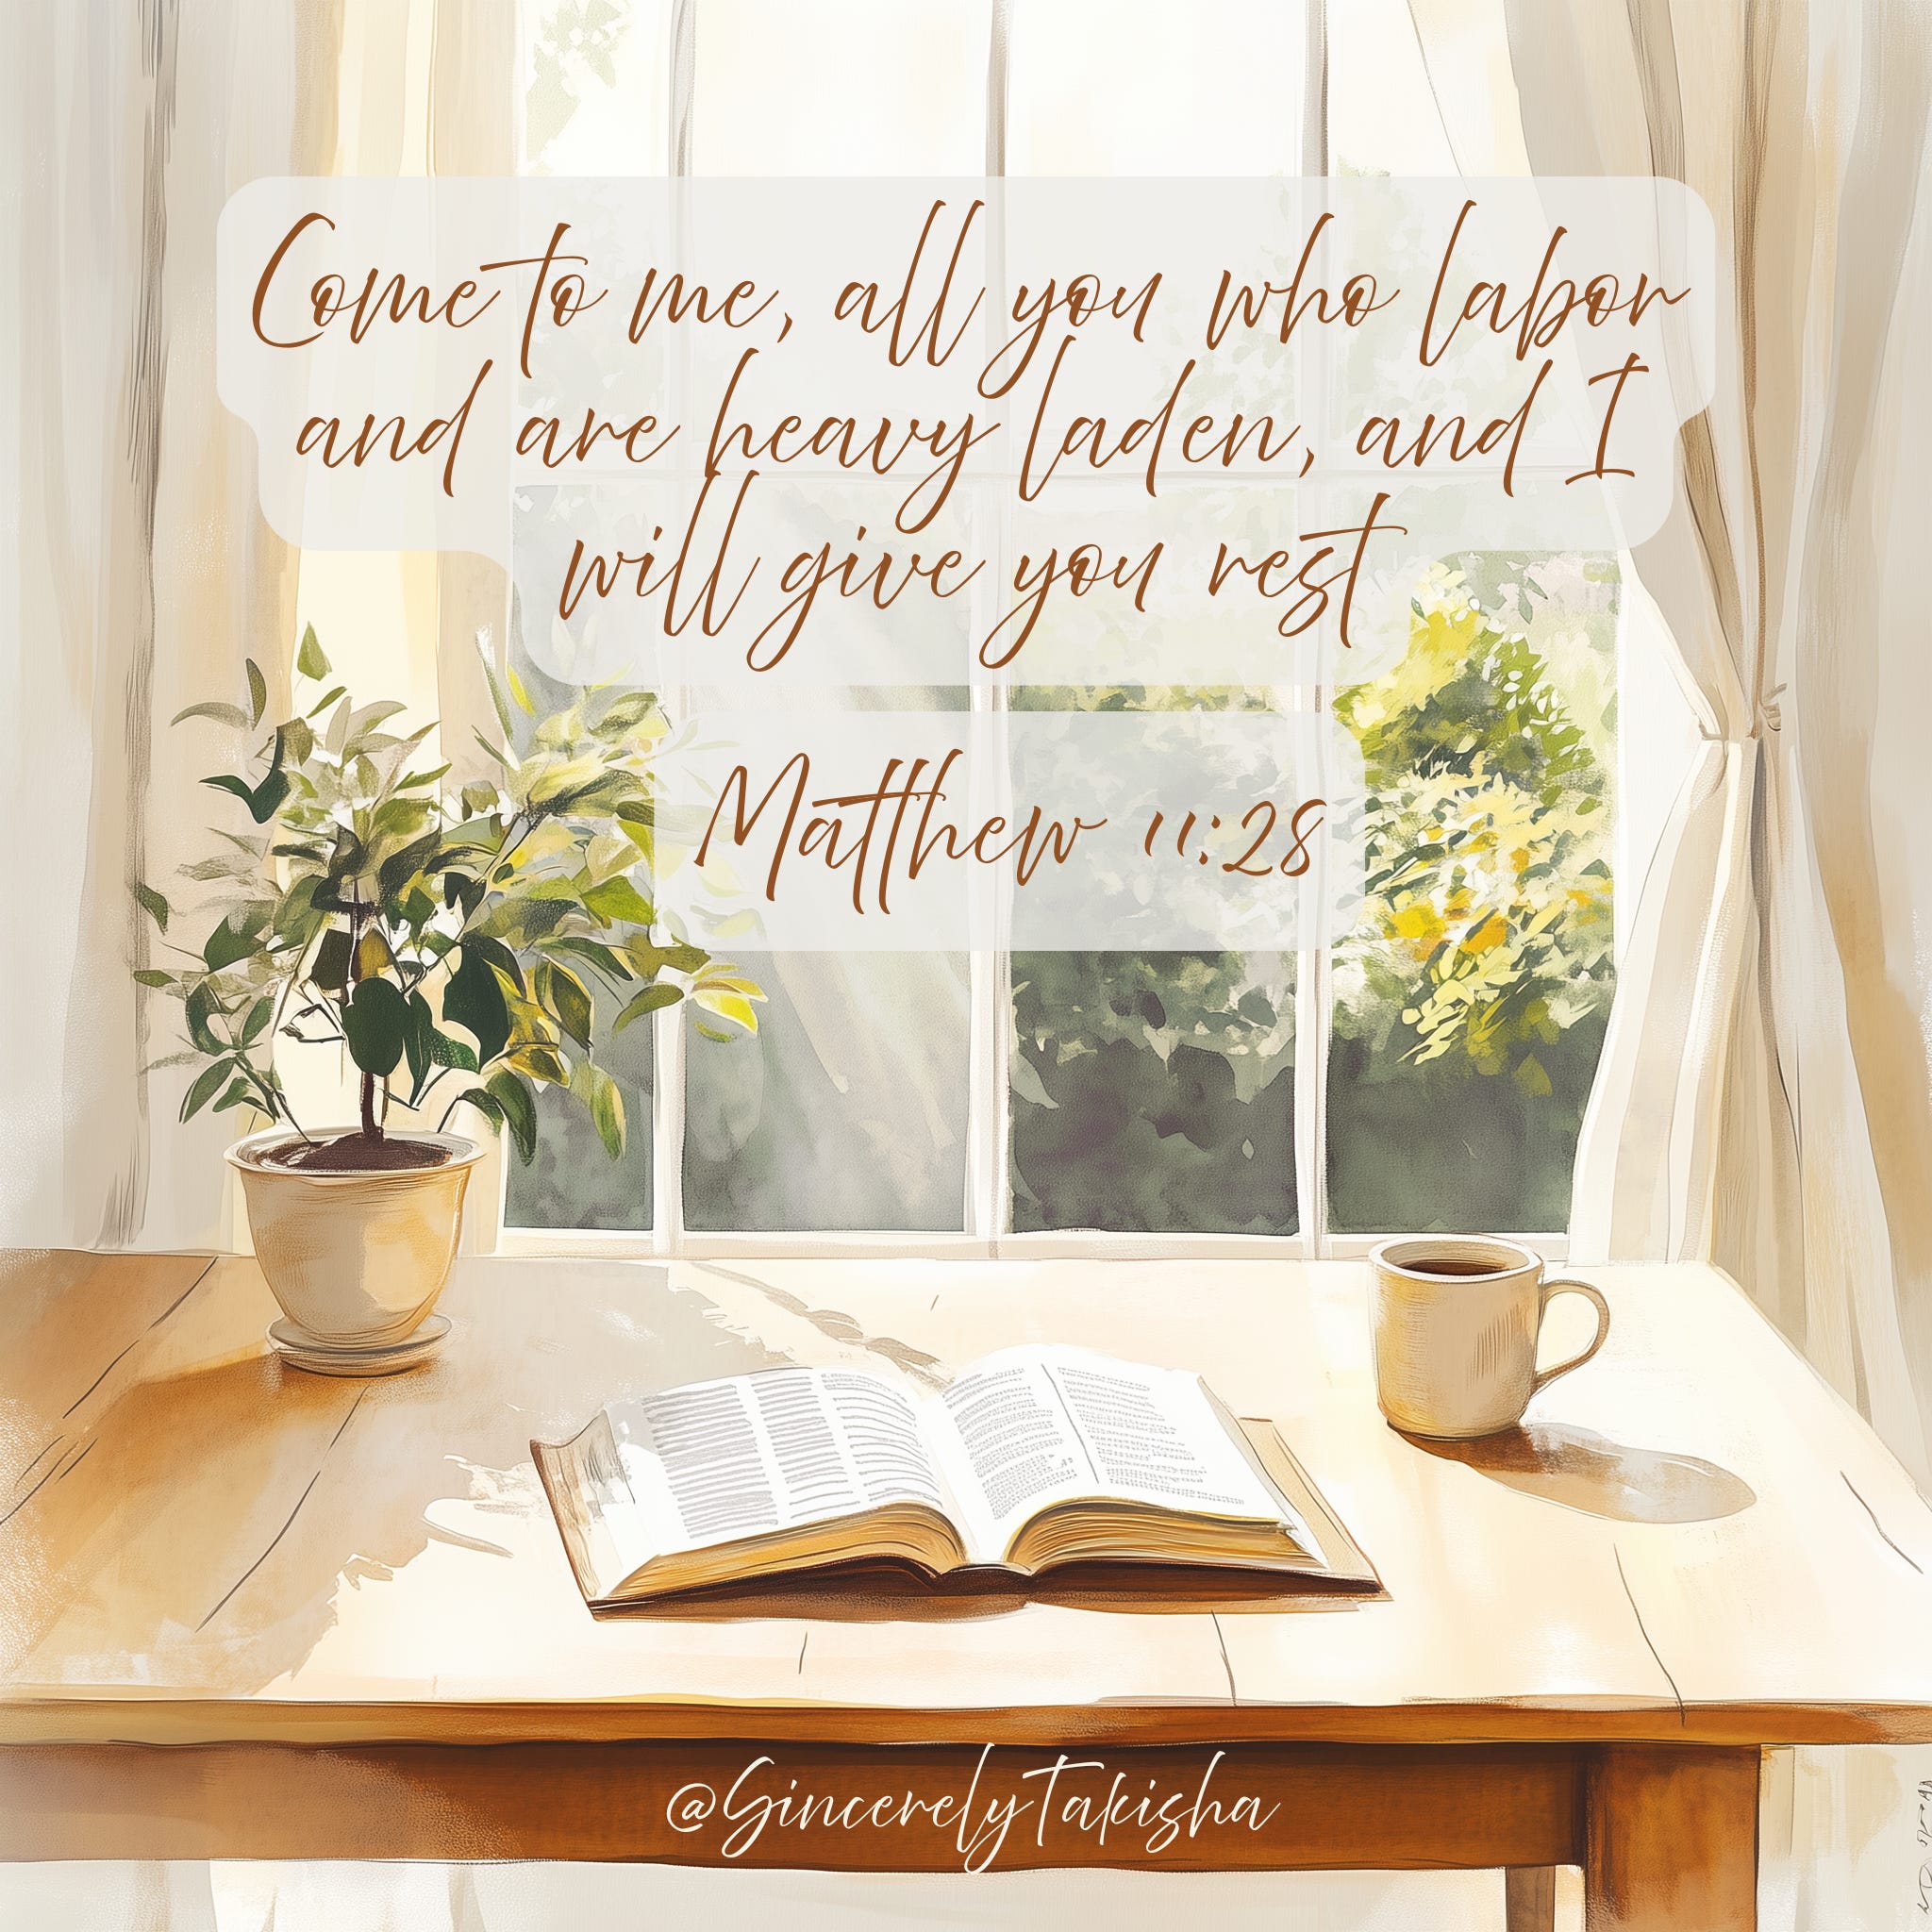 Come to me, all you who labor
and are heavy laden, and I
will give you rest
Matthew 11:28
@SincerelyTakisha